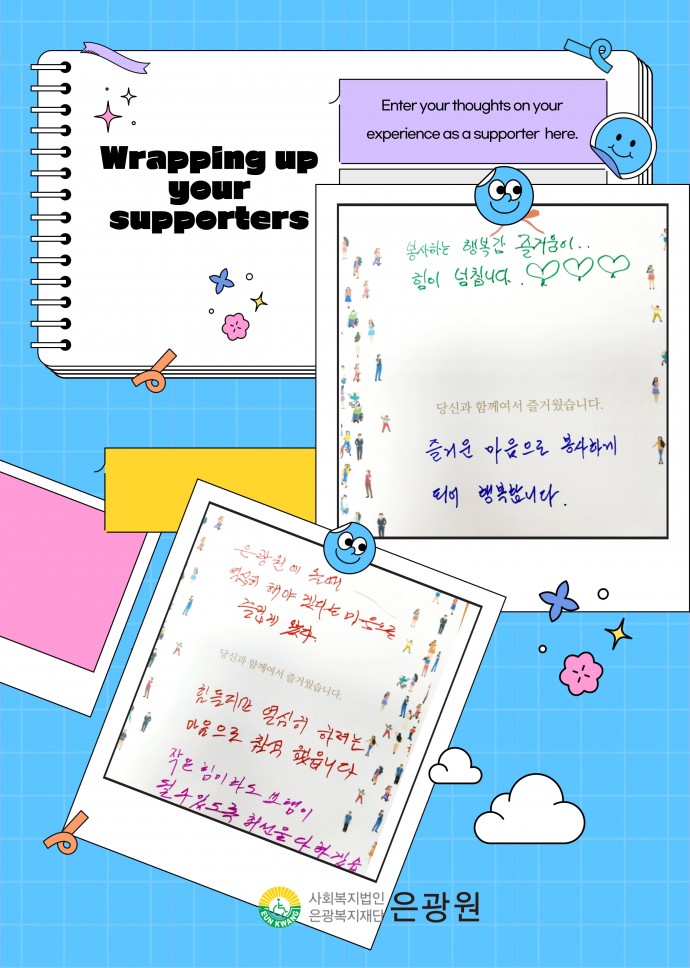 Wrapping up
your
supporters
Enter your thoughts on your
experience as a supporter here.
봉사하는 행복감 즐거움이..
힘이 넘칩니다.
당신과 함께여서 즐거웠습니다.
즐거운 마음으로 봉사하게
되어 행복합니다.
은광원에 올때
열심히 해야 겠다는 마음으로
즐겁게 왔다.
당신과 함께여서 즐거웠습니다.
힘들지만 열심히 하려는
마음으로 참석 했습니다
작은 힘이라도 보탬이
될 수 있도록 최선을 다 하겠슴
EUN KWANG
사회복지법인
은광복지재단 은광원